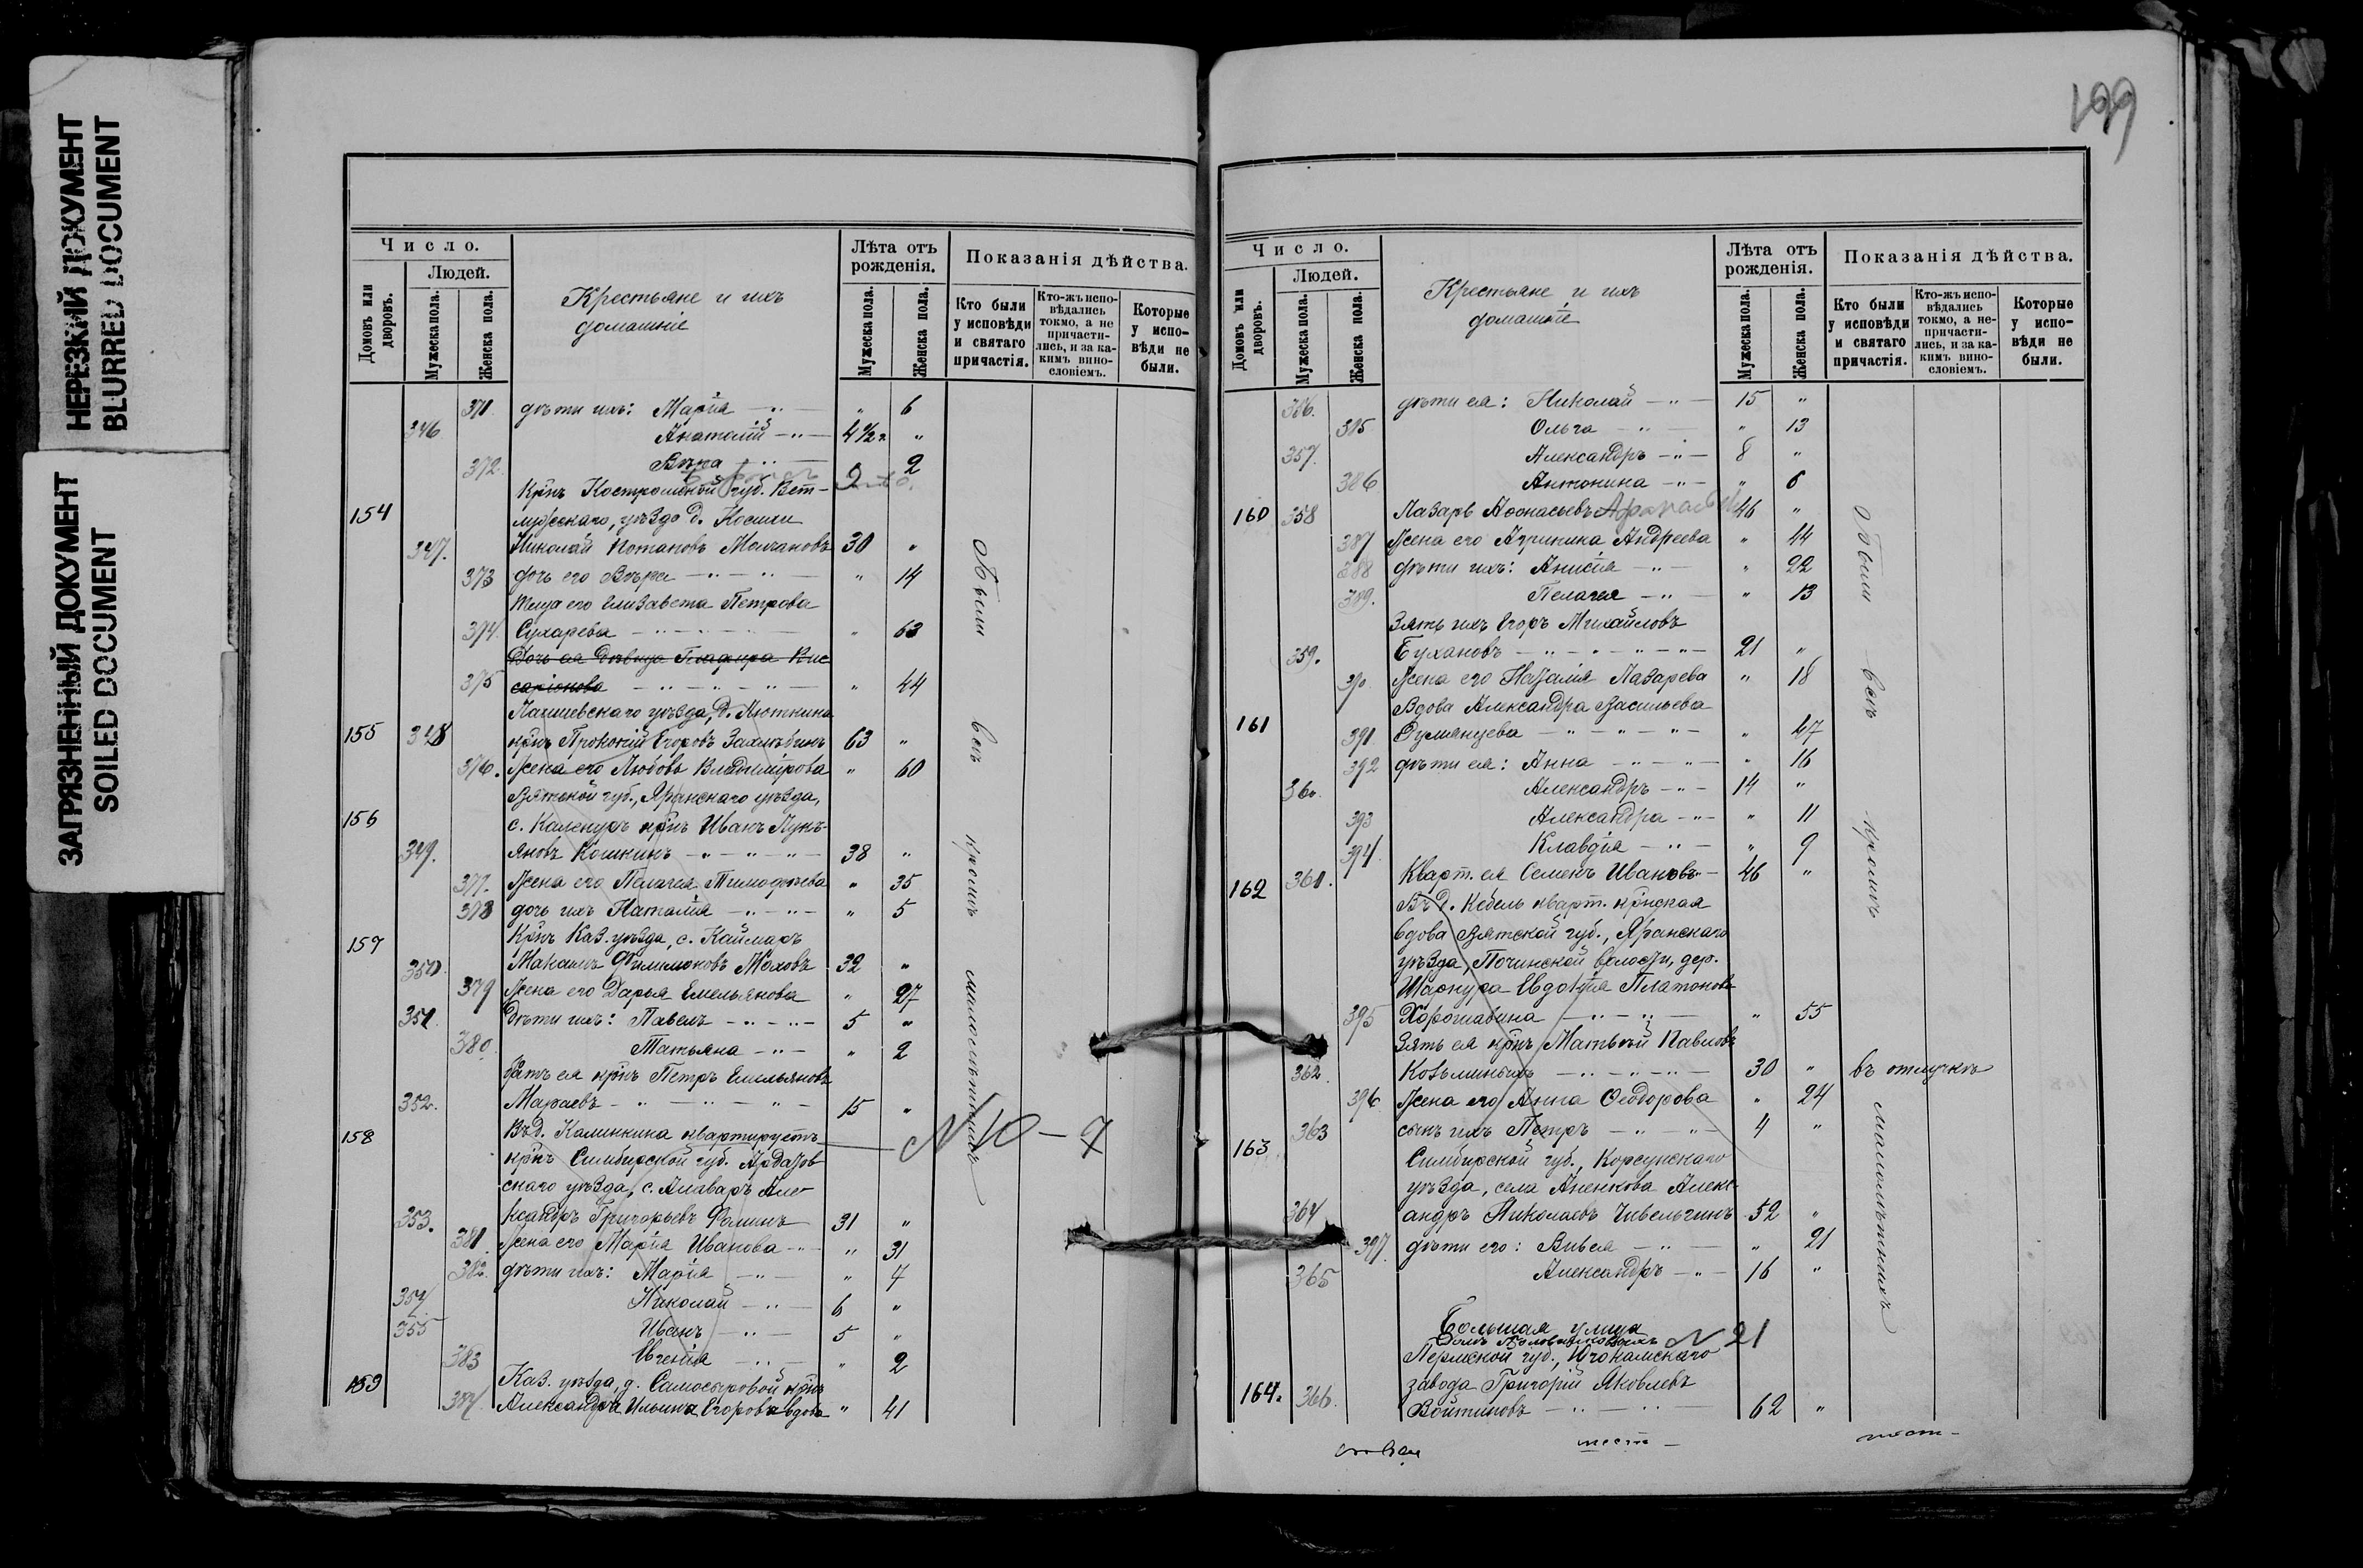 НЕРЕЗКИЙ ДОКУМЕНТ
BLURRED DOCUMENT
ЗАГРЯЗНЕННЫЙ ДОКУМЕНТ
SOILED DOCUMENT
Число.
Людей.
Домовъ или дворовъ.
Мужеска пола.
Женска пола.
Крестьяне и ихъ
домашніе
Лѣта отъ
рожденія.
Мужеска пола.
Женска пола.
Показанія дѣйства.
Кто были
у исповѣди
и святаго
причастія.
Кто-жъ испо-
вѣдались
токмо, а не
причасти-
лись, и за ка-
кимъ вино-
словіемъ.
Которые
у испо-
вѣди не
были.
371. дѣти ихъ: Марія — „ — „ 6
346 Анатолій — „ — 4½ г. „
372. Вѣра — „ — 2
Крнъ Костромской губ. Вет-
154 лужскаго, уѣзда д.
347. Николай Потаповъ Молчановъ 30 „
373 дочь его Вѣра — „ — „ — „ 14
Теща его Елизавета Петрова
374. Сухарева — „ — „ — „ 63
Дочь ея дѣвица Глафира Вис
375 саріонова — „ — „ — „ — „ 44
Лаишевскаго уѣзда, д.
155 348 крнъ Прокопій Егоровъ 63 „
376. Жена его Любовь Владимірова „ 60
Вятской губ., Яранскаго уѣзда,
156 с. крнъ Иванъ Лукь-
349. яновъ Кошкинъ — „ — „ — „ — 38 „
377. Жена его Пелагея Тимофѣева „ 35
378 дочь ихъ Наталія — „ — „ — „ 5
157 Крнъ Каз. уѣзда, с. Каймаръ
350. Макаимъ Филимоновъ Моховъ 32 „
379 Жена его Дарья Емельянова „ 27
351. Дѣти ихъ: Павелъ — „ — „ — 5 „
380. Татьяна — „ — „ 2
братъ ея крнъ Петръ Емельяновъ
352. Мараевъ — „ — „ — „ — 15 „
158 Въ д. Калинкина квартируетъ — N 10 — 7
крнъ Симбирской губ. Ардатов
скаго уѣзда, с. Алаваръ Але-
353. ксандръ Григорьевъ Фолинъ 31 „
381. Жена его Марія Иванова — „ — „ 31
382. дѣти ихъ: Марія — „ — „ 4
354. Николай — „ — 6 „
355 Иванъ — „ — 5 „
383 Евгенія — „ — „ 2
159 Каз. уѣзда, д. Самосыровой крнъ
384. Александра Ильина Егорова вдова „ 41
Обыли
всѣ
кромѣ
малолѣтнихъ
199
Число.
Людей.
Домовъ или дворовъ.
Мужеска пола.
Женска пола.
Крестьяне и ихъ
домашніе
Лѣта отъ
рожденія.
Мужеска пола.
Женска пола.
Показанія дѣйства.
Кто были
у исповѣди
и святаго
причастія.
Кто-жъ испо-
вѣдались
токмо, а не-
причасти-
лись, и за ка-
кимъ вино-
словіемъ.
Которые
у испо-
вѣди не
были.
356. дѣти ея: Николай — „ — 15 „
385 Ольга — „ — „ 13
357. Александръ — „ — 8 „
386 Антонина — „ — „ 6
160 358 Лазарь Аѳонасьевъ 46 „
387 Жена его Агрипина Андреева „ 44
388 дѣти ихъ: Анисія — „ — „ 22
389. Пелагея — „ — „ 13
Зять ихъ Егоръ Михайловъ
359. Бухановъ — „ — „ — „ — „ — 21 „
390 Жена его Наталія Лазарева „ 18
161 Вдова Александра Васильева
391. Румянцева — „ — „ — „ — „ 47
392 дѣти ея: Анна — „ — „ — „ 16
360. Александръ — „ — 14 „
393 Александра — „ — „ 11
394. Клавдія — „ — „ 9
162 361. Кварт. ея Семенъ Ивановъ — 46 „
Въ д. Кебель кварт. крнская
вдова Вятской губ., Яранскаго
уѣзда, Починской волости, дер.
Шарнура Евдокія Платонова
395 Хорошавина — „ — „ — „ 55
Зять ея крнъ Матвѣй Павловъ
362. Козьминыхъ — „ — „ — 30 „ въ отлучкѣ
396. Жена его Анна Ѳеодорова „ 24
363 сынъ ихъ Петръ — „ — „ — 4 „
163 Симбирской губ., Корсунскаго
уѣзда, села Аненкова Алекс-
364 андръ Николаевъ 52 „
397. дѣти его: — „ — „ 21
365 Александръ — „ — 16 „
Большая улица
Домъ N 21
Пермской губ.,
завода Григорій Яковлевъ
164. 366. Войтиновъ — „ — „ — 62 „
Обыли
всѣ
кромѣ
малолѣтнихъ